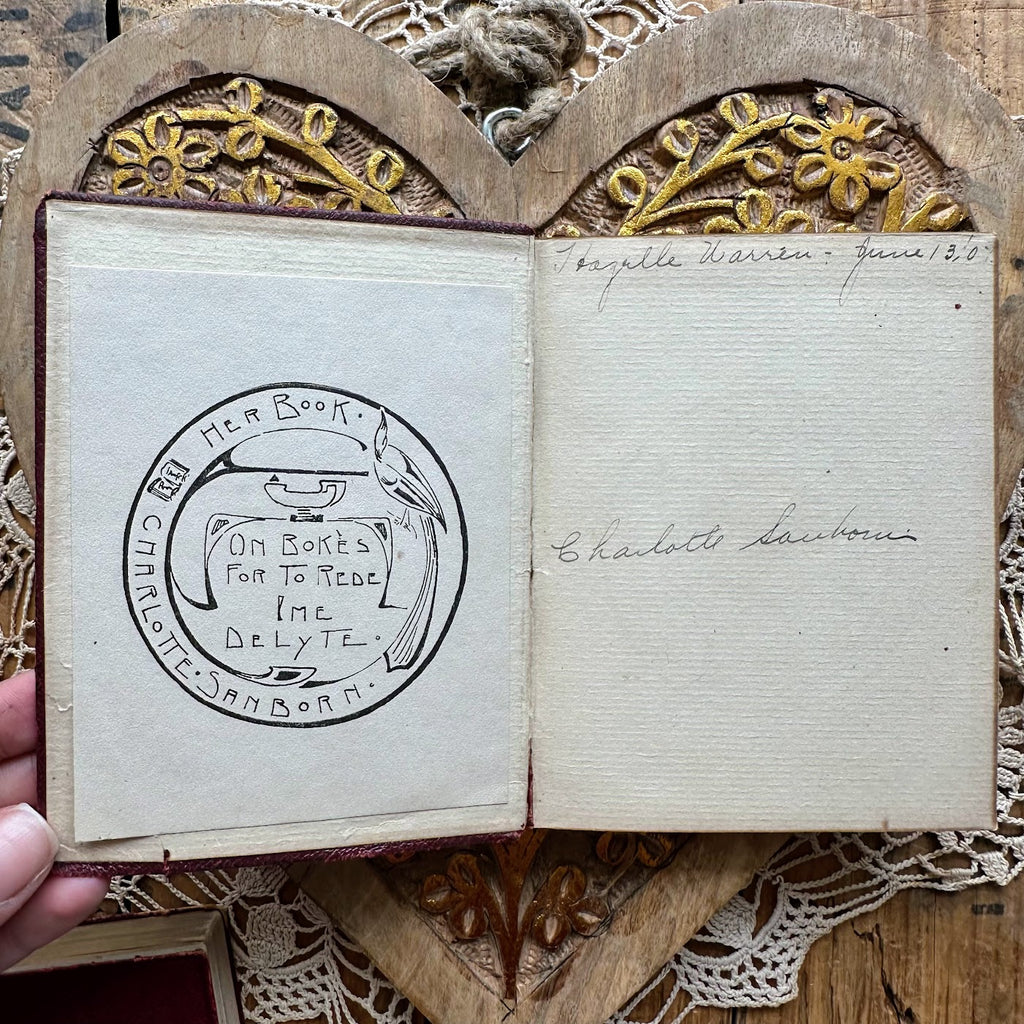 HER BOOK.
CHARLOTTE. SANBORN.
ON BOKÈS
FOR TO REDE
IME
DELYTE.
Hazelle Warren - June 13, '0
Charlotte Sanborn